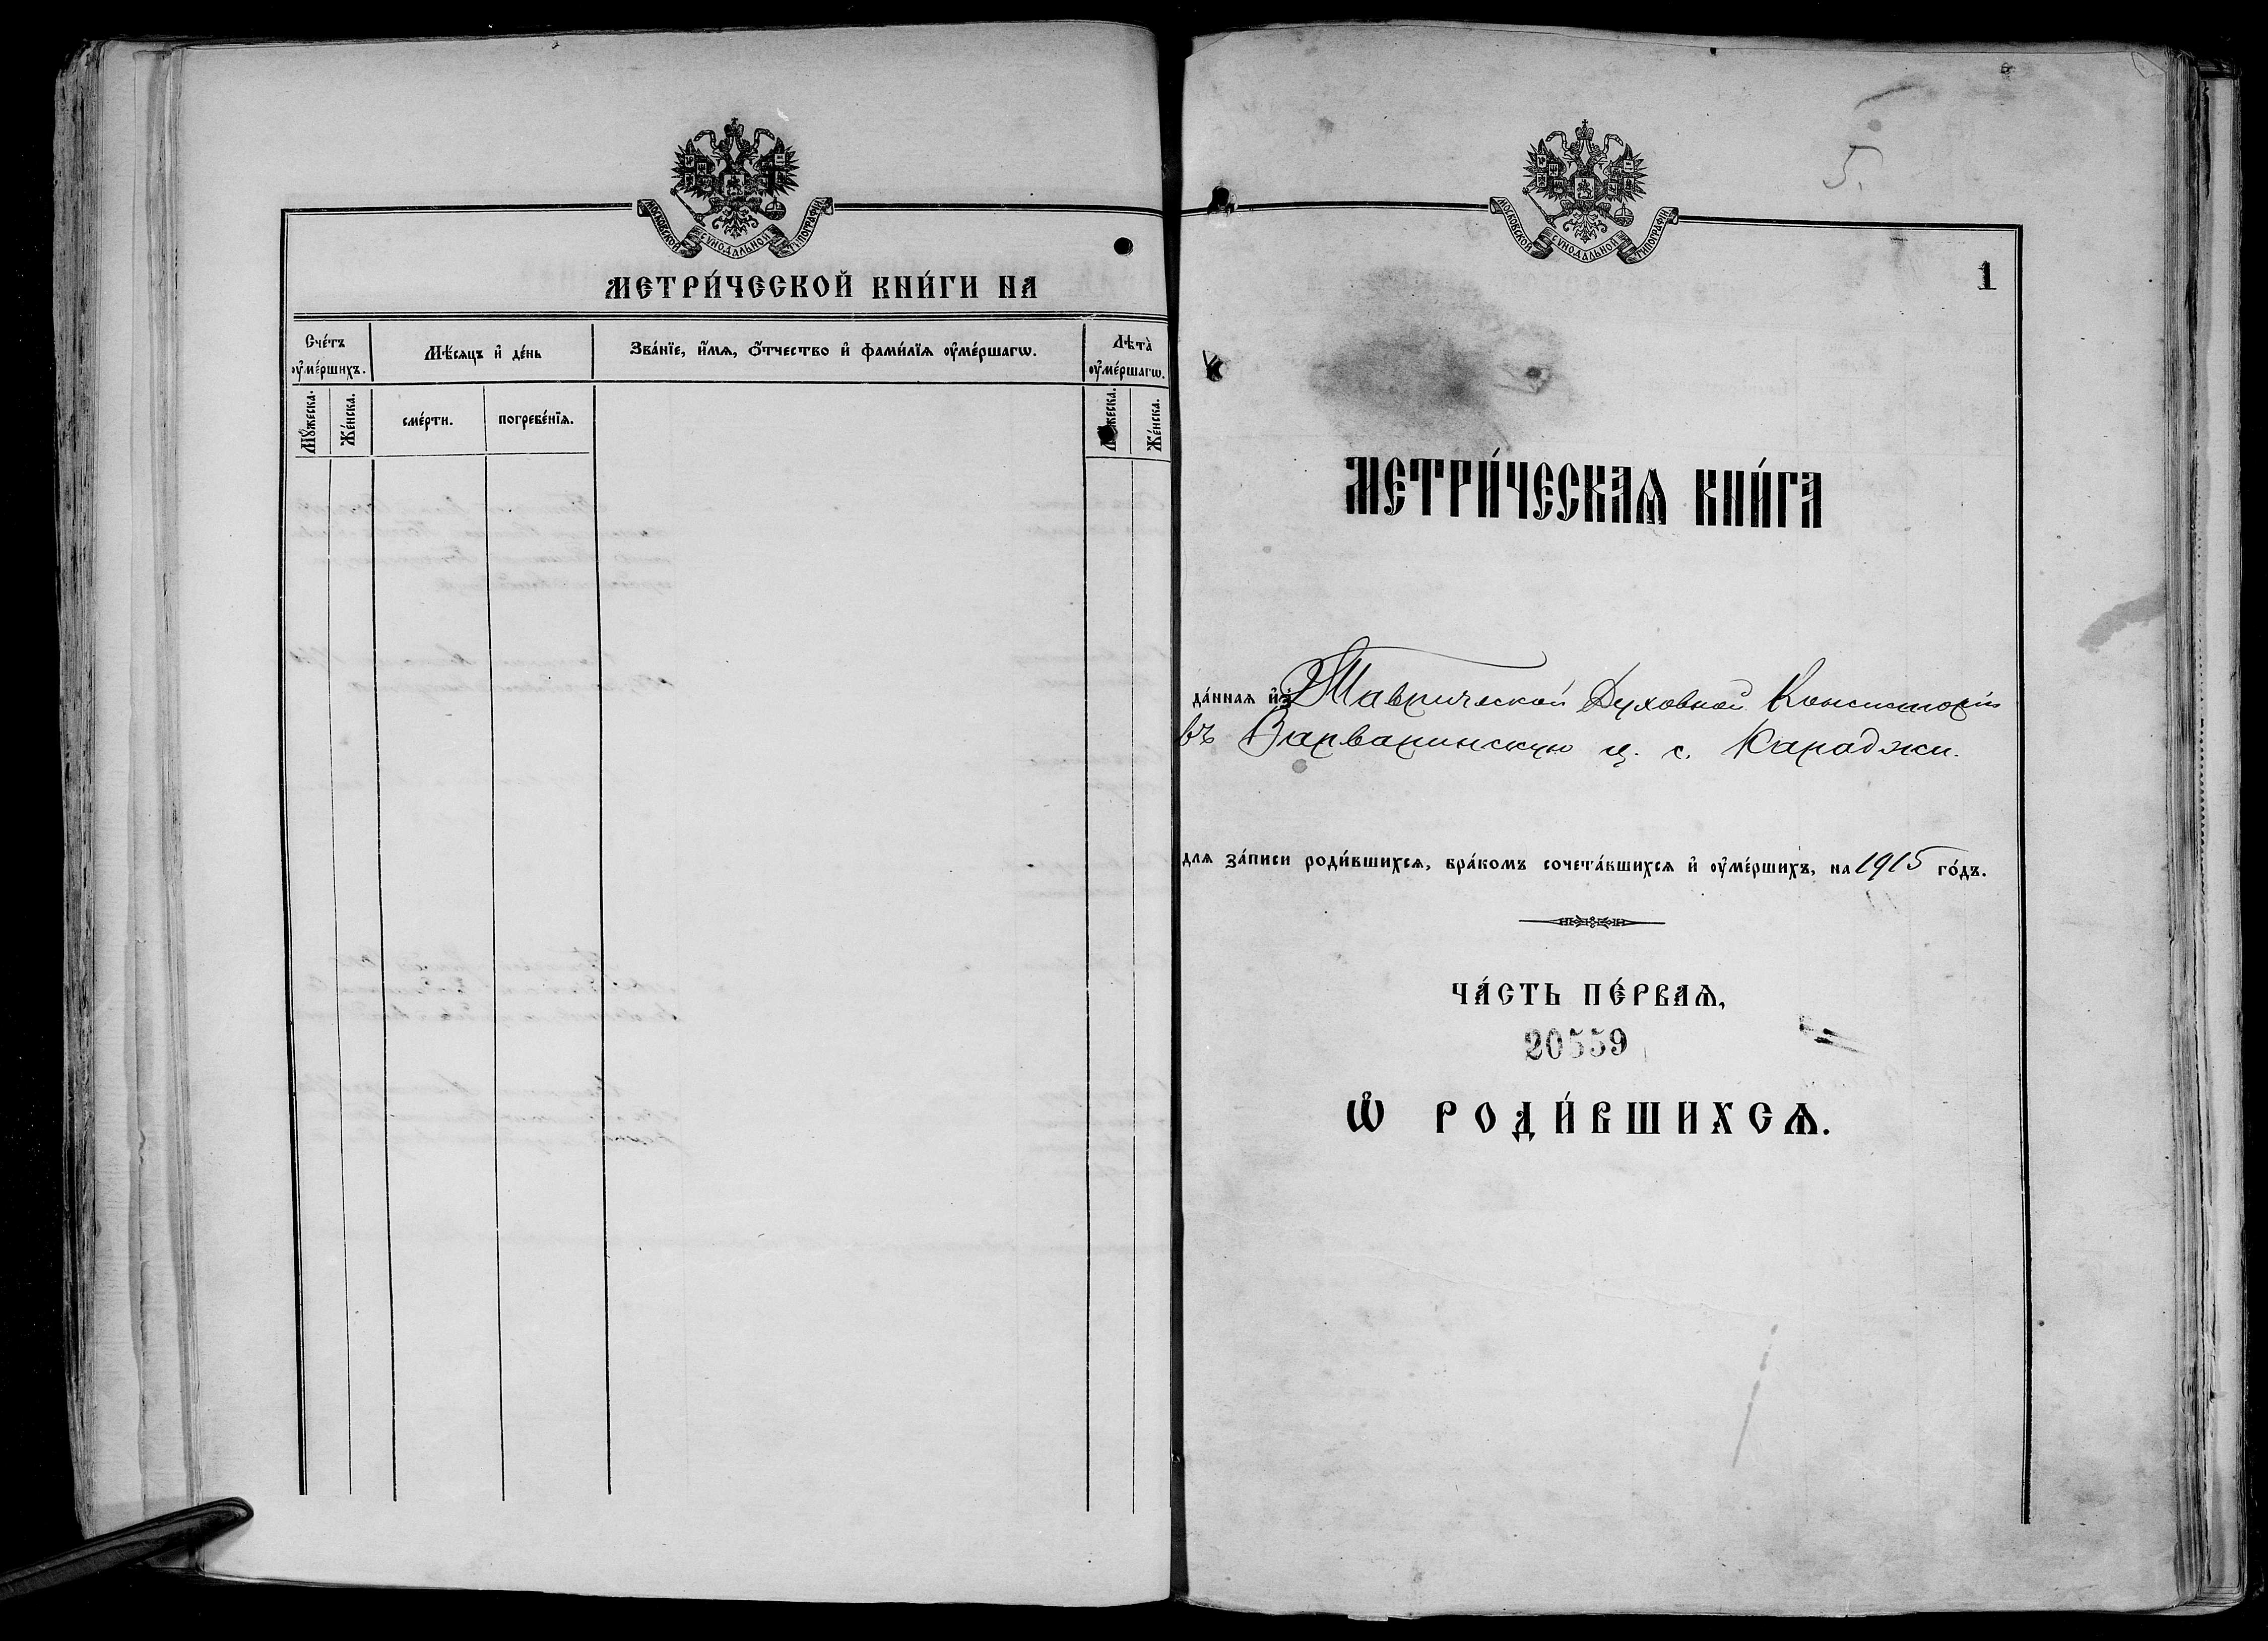 МОСКОВСКОЙ СѴНОДАЛЬНОЙ ТИПОГРАФІИ.
МЕТРИ́ЧЕСКОЙ КНИ́ГИ НА
Сче́тъ ᲂу҆ме́ршихъ.
Мѣ́сяцъ и҆ де́нь
Зва́нїе, и҆́мѧ, ѻ҆́тчество и҆ фами́лїѧ ᲂу҆ме́ршагѡ.
Лѣта̀ ᲂу҆ме́ршагѡ.
Мꙋ́жеска.
Же́нска.
сме́рти.
погребе́нїѧ.
Мꙋ́жеска.
Же́нска.
5.
МОСКОВСКОЙ СѴНОДАЛЬНОЙ ТИПОГРАФІИ.
1
МЕТРИ́ЧЕСКАѦ КНИ́ГА
да́ннаѧ и҆з̾ Таврической Духовной Консисторіи
въ Варваринскую ц. с. Караджи.
длѧ за́писи роди́вшихсѧ, бра́комъ сочета́вшихсѧ и҆ ᲂу҆ме́ршихъ, на 1915 го́дъ.
ЧА́СТЬ ПЕ́РВАѦ,
20559
Ѡ҆ РОДИ́ВШИХСѦ.